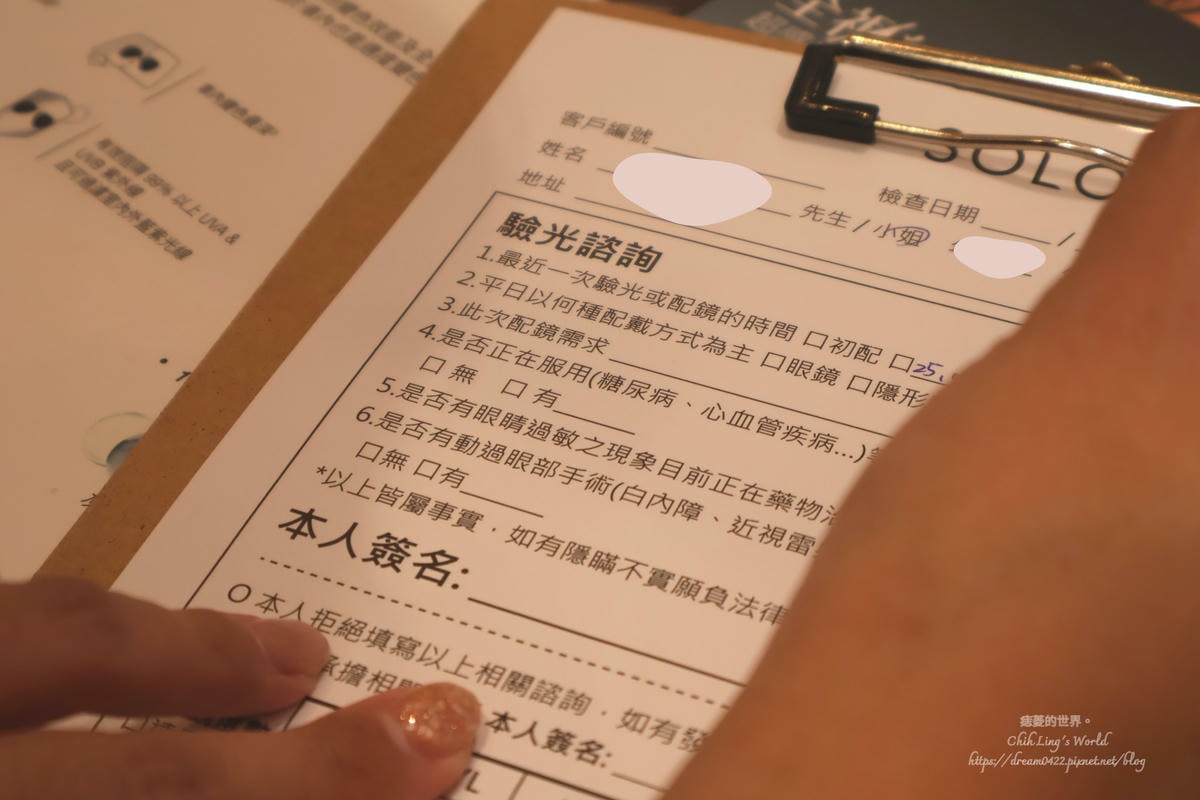 全視
SOLO
客戶編號
檢查日期 /
姓名 先生 / 小姐
地址
驗光諮詢
1.最近一次驗光或配鏡的時間 口初配 口25.
2.平日以何種配戴方式為主 口眼鏡 口隱形
3.此次配鏡需求
4.是否正在服用(糖尿病、心血管疾病...)
口 無 口 有
5.是否有眼睛過敏之現象目前正在藥物治
6.是否有動過眼部手術(白內障、近視雷
口無 口有
*以上皆屬事實，如有隱瞞不實願負法律
本人簽名:
本人拒絕填寫以上相關諮詢，如有發
承擔相
本人簽名:
有效阻隔 99% 以上 UVA &
UVB 紫外線
且可過濾室內外藍紫光線
痞菱的世界。
Chih Ling's World
https://dream0422.pixnet.net/blog